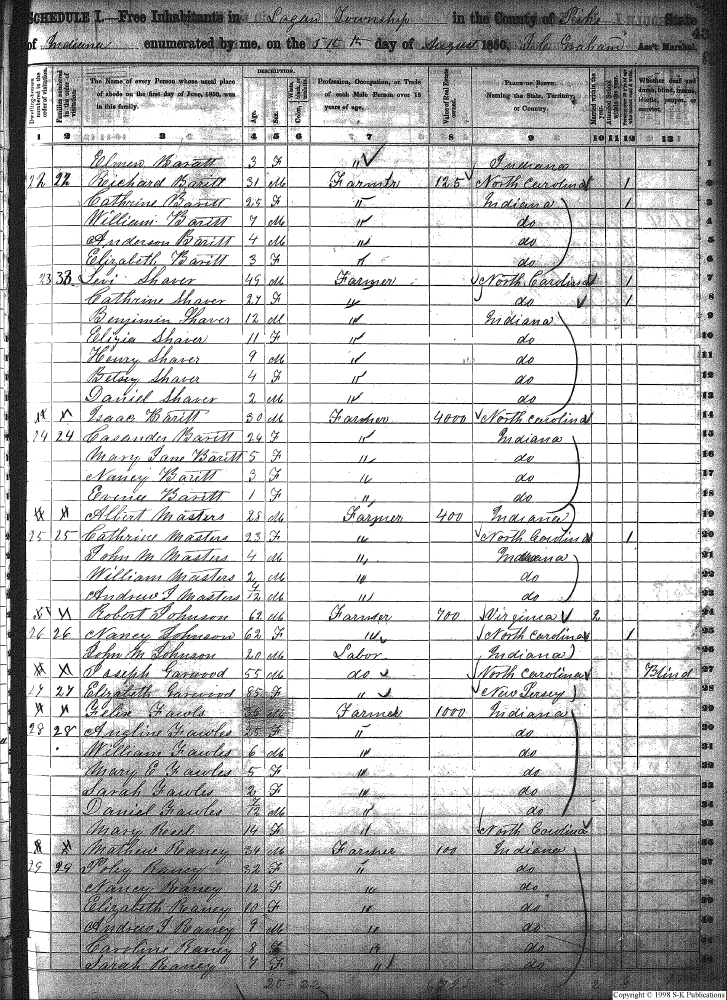 SCHEDULE I.—Free Inhabitants in Logan Township in the County of Pike State
of Indiana enumerated by me, on the 5th day of August 1850. Ass't Marshal.
43
Dwelling-houses numbered in the order of visitation.
Families numbered in the order of visitation.
The Name of every Person whose usual place of abode on the first day of June, 1850, was in this family.
DESCRIPTION.
Age.
Sex.
Profession, Occupation, or Trade of each Male Person over 15 years of age.
Value of Real Estate owned.
PLACE OF BIRTH. Naming the State, Territory, or Country.
1 2 3 4 5 6 7 8 9 10 11 12 13
Elmen Baratt 3 F " Indiana 1
22 22 Richard Baritt 31 M Farmer 125 North Carolina 1 2
Cathrine Baritt 25 F " Indiana 1 3
William Baritt 7 M " do 4
Anderson Baritt 4 M " do 5
Elizabeth Baritt 3 F " do 6
23 33 Levi Shaver 49 M Farmer North Carolina 1 7
Cathrine Shaver 27 F " do 1 8
Benjimin Shaver 12 M " Indiana 9
Elizia Shaver 11 F " do 10
Henry Shaver 9 M " do 11
Betsey Shaver 4 F " do 12
Daniel Shaver 2 M " do 13
Isaac Baritt 30 M Farmer 4000 North Carolina 14
24 24 Casander Baritt 24 F " Indiana 15
Mary Jane Baritt 5 F " do 16
Nancy Baritt 3 F " do 17
Evence Baritt 1 F " do 18
Albert Masters 28 M Farmer 400 Indiana 19
25 25 Cathrine Masters 23 F " North Carolina 1 20
John M Masters 4 M " Indiana 21
William Masters 2 M " do 22
Andrew J Masters 4/12 M " do 23
Robert Johnson 62 M Farmer 700 Virginia 2 24
26 26 Nancy Johnson 62 F " North Carolina 1 25
John M Johnson 20 M Labor Indiana 26
Joseph Garwood 55 M do North Carolina Blind 27
27 27 Elizabeth Garwood 85 F " New Jersey 28
Felix Fawls 35 M Farmer 1000 Indiana 29
28 28 Angline Fawles 25 F " do 30
William Fawles 6 M " do 31
Mary E Fawles 5 F " do 32
Sarah Fawles 2 F " do 33
Daniel Fawles 7/12 M " do 34
Mary Reel 14 F " North Carolina 35
Mathew Raney 34 M Farmer 100 Indiana 36
29 29 Poley Raney 32 F " do 37
Nancy Raney 12 F " do 38
Elizabeth Raney 10 F " do 39
Andrew J Raney 9 M " do 40
Caroline Raney 8 F " do 41
Sarah Raney 7 F " do 42
Copyright © 1998 S-K Publications